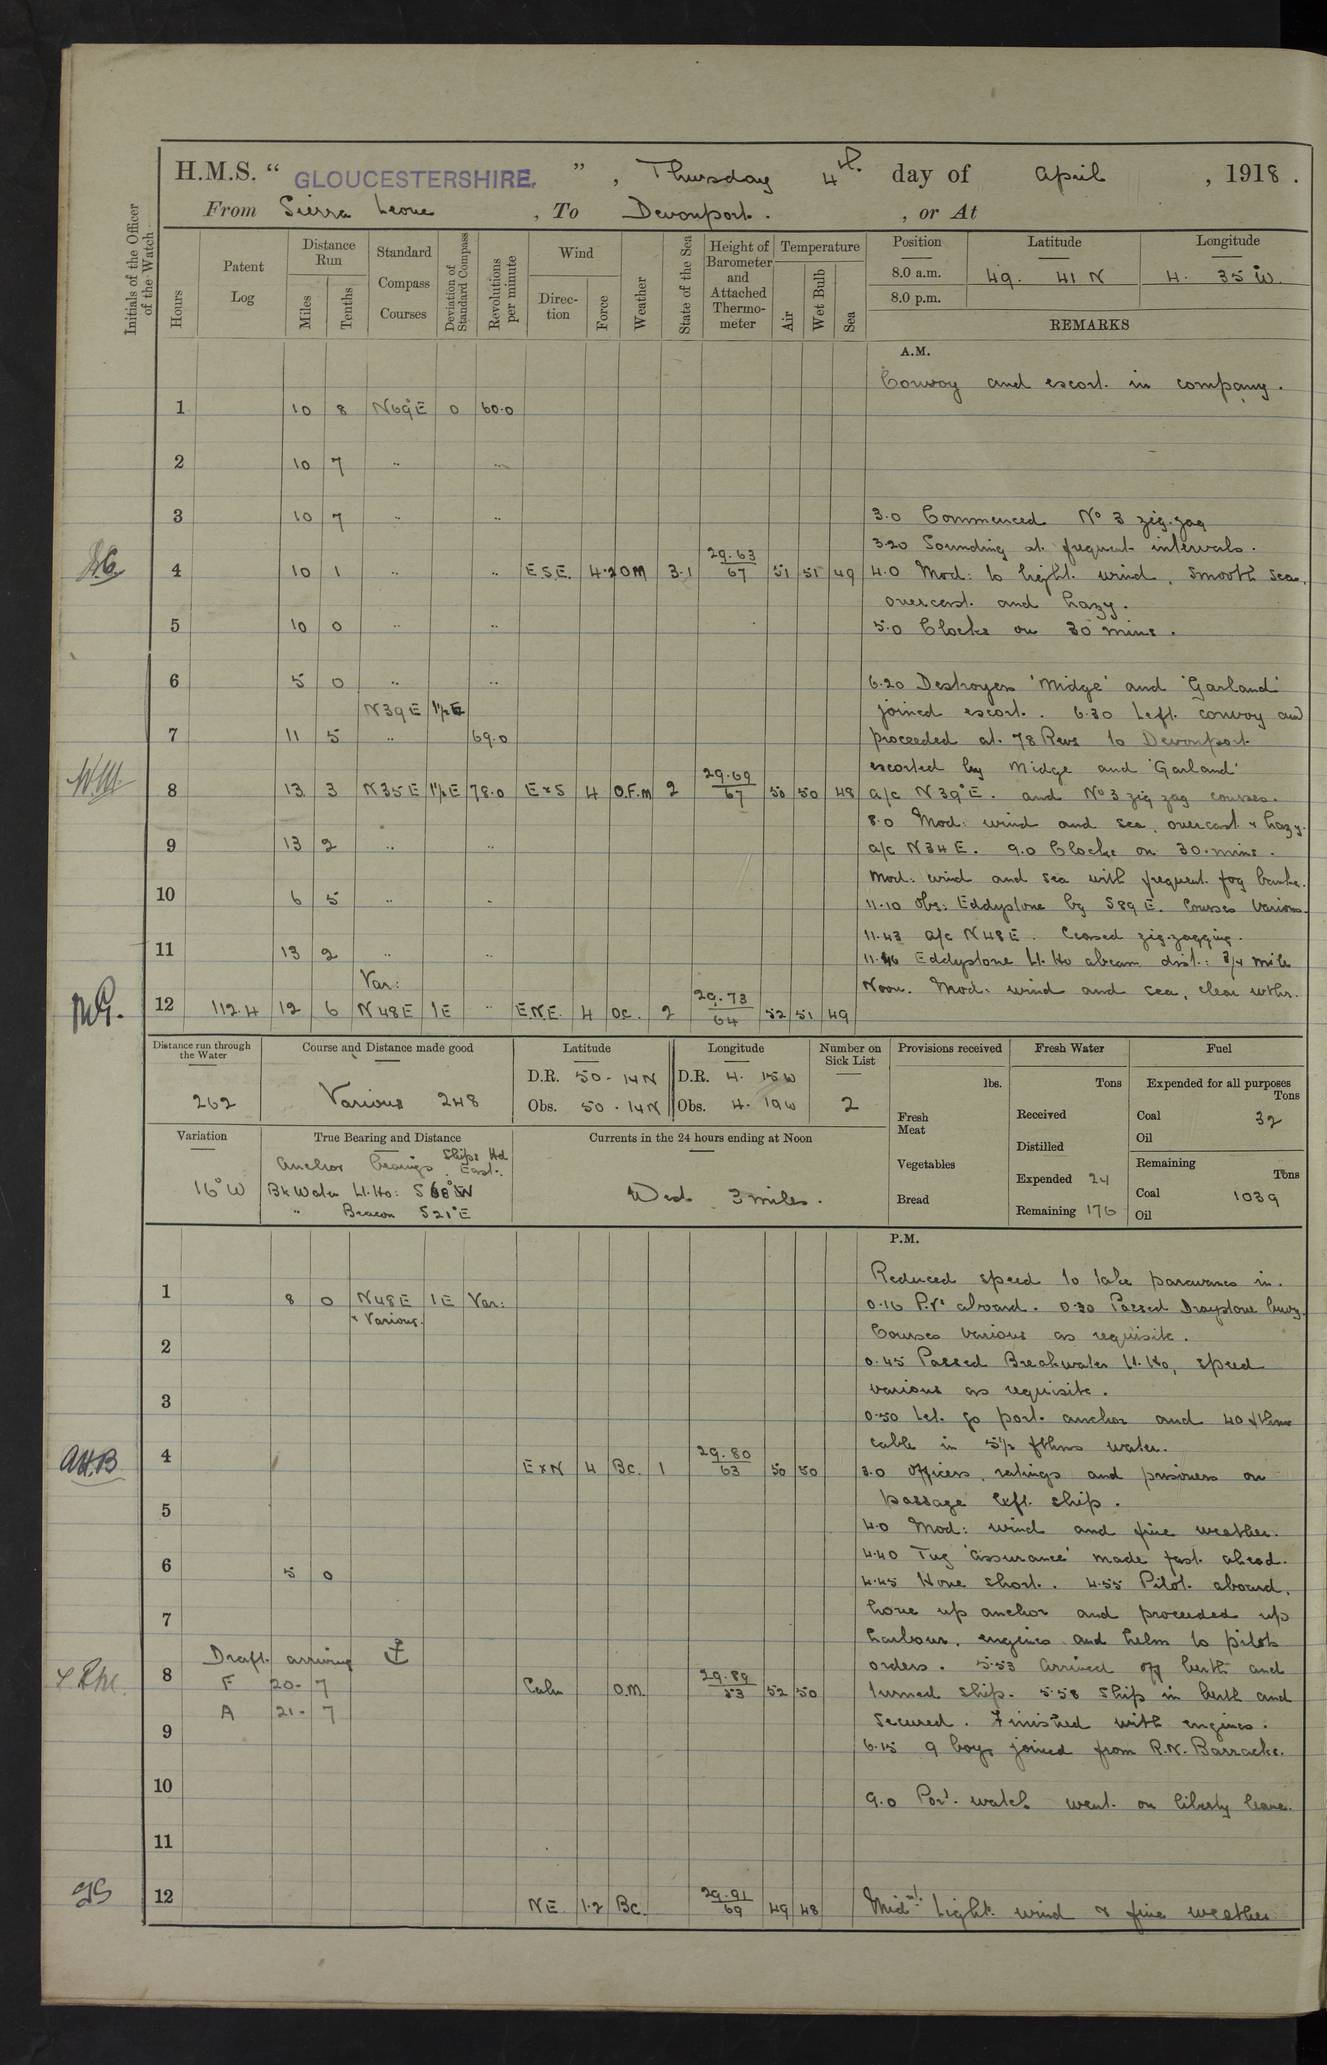 H.M.S. " GLOUCESTERSHIRE. " , Thursday 4th day of April , 1918 .
From Sierra Leone , To Devonport . , or At
Initials of the Officer of the Watch
Hours
Patent Log
Distance Run
Miles
Tenths
Standard Compass Courses
Deviation of Standard Compass
Revolutions per minute
Wind
Direction
Force
Weather
State of the Sea
Height of Barometer and Attached Thermometer
Temperature
Air
Wet Bulb
Sea
Position Latitude Longitude
8.0 a.m. 49. 41 N 4. 35 W.
8.0 p.m.
REMARKS
A.M.
Convoy and escort in company.
1 10 8 N69°E 0 60.0
2 10 7 " "
3 10 7 " " 3.0 Commenced No 3 zig-zag
3.20 Sounding at frequent intervals.
4 10 1 " " E.S.E. 4.2 OM 3.1 29.63/67 51 51 49 4.0 Mod: to light wind, smooth sea,
overcast and hazy.
5 10 0 " " 5.0 Clocks on 30 mins.
6 5 0 " " 6.20 Destroyers 'Midge' and 'Garland'
N39E 1½E joined escort. 6.30 Left convoy and
7 11 5 " 69.0 proceeded at 78 Revs to Devonport
escorted by Midge and 'Garland'
8 13 3 N35E 1½E 78.0 ExS 4 O.F.M 2 29.69/67 50 50 48 a/c N39°E. and No 3 zig zag courses.
8.0 Mod: wind and sea, overcast & hazy.
9 13 2 " " a/c N34E. 9.0 Clocks on 30 mins.
Mod: wind and sea with frequent fog banks.
10 6 5 " " 11.10 Obs: Eddystone bg S89E. Courses Various.
11.43 a/c N48E. Ceased zig-zagging.
11 13 2 " " 11.46 Eddystone Lt. Ho abeam dist: 3/4 mile
Var: Noon. Mod: wind and sea, clear wthr.
12 112.4 12 6 N48E 1E " E.N.E. 4 Oc. 2 29.73/64 52 51 49
Distance run through the Water
262
Course and Distance made good
Various 248
Latitude
D.R. 50 - 14N
Obs. 50 . 14N
Longitude
D.R. 4. 15W
Obs. 4. 19W
Number on Sick List
2
Provisions received
lbs.
Fresh Meat
Vegetables
Bread
Fresh Water
Tons
Received
Distilled
Expended 24
Remaining 176
Fuel
Expended for all purposes
Tons
Coal 32
Oil
Remaining
Tons
Coal 1039
Oil
Variation
16°W
True Bearing and Distance
Anchor bearings Ships Hd East.
Bk Water Lt. Ho: S 68°W
" Beacon S21°E
Currents in the 24 hours ending at Noon
West 3 miles.
P.M.
Reduced speed to take paravanes in.
1 8 0 N48E 1E Var: 0.16 P.Vs aboard. 0.30 Passed Draystone buoy.
& Various. Courses various as requisite.
2 0.45 Passed Breakwater Lt. Ho, speed
various as requisite.
3 0.50 Let go port anchor and 40 fthms
cable in 5½ fthms water.
4 ExN 4 Bc. 1 29.80/63 50 50 3.0 Officers, ratings and prisoners on
passage left ship.
5 4.0 Mod: wind and fine weather.
4.40 Tug 'Assurance' made fast ahead.
6 5 0 4.45 Hove short. 4.55 Pilot aboard,
hove up anchor and proceeded up
7 harbour, engines and helm to pilots
Draft arriving orders. 5.53 Arrived off berth and
8 F 20 - 7 Calm O.M. 29.89/53 52 50 turned ship. 5.58 Ship in berth and
A 21 - 7 secured. Finished with engines.
9 6.15 9 boys joined from R.N. Barracks.
10 9.0 Port. watch went on liberty leave.
11
12 NE 1.2 Bc. 29.91/69 49 48 Midnt. Light wind & fine weather
A.H.B